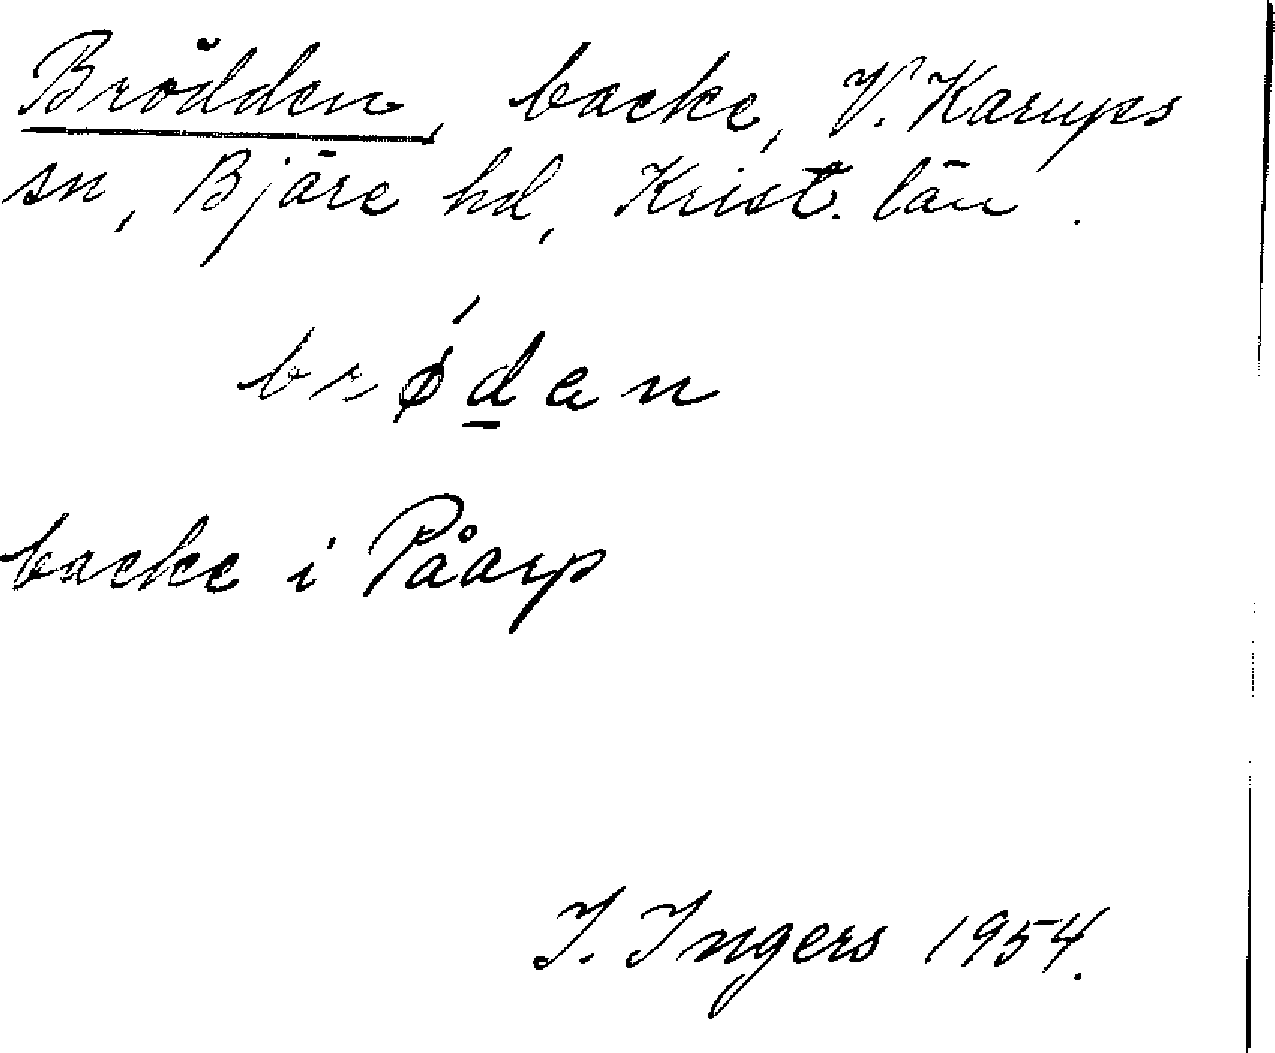 Brödden, backe, V. Karups
sn, Bjäre hd, Krist. län.
brǿd̲an
backe i Påarp
I. Ingers 1954.